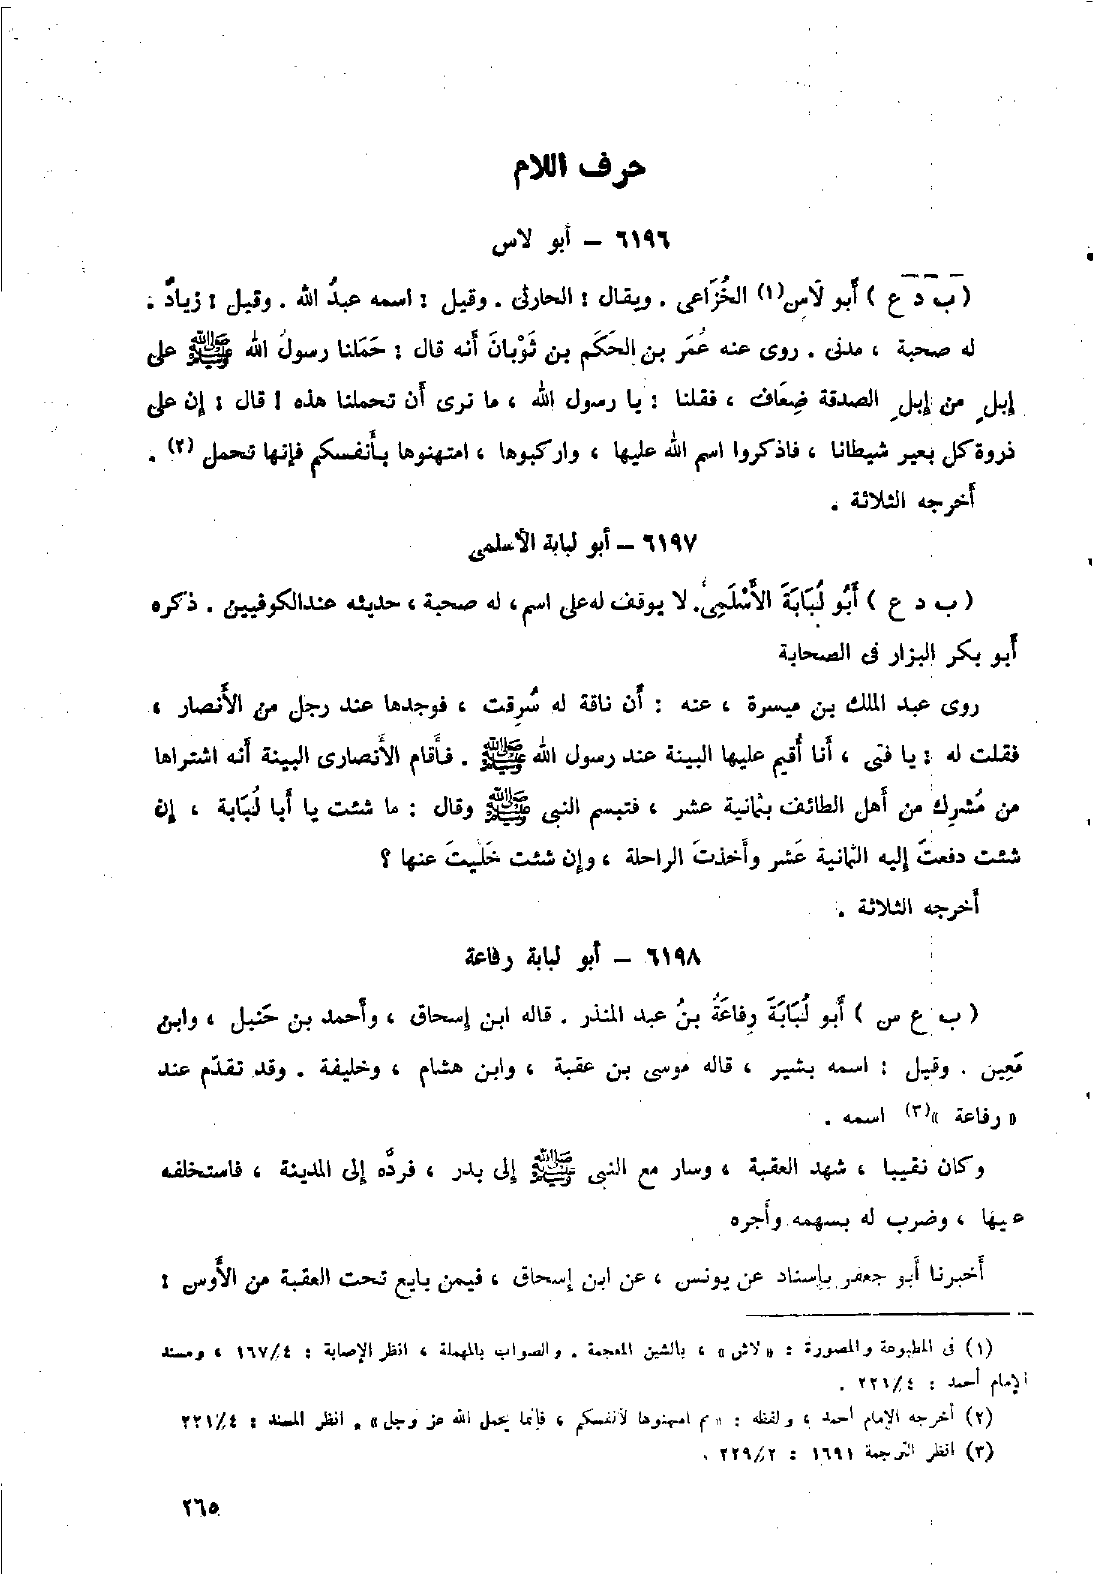 حرف اللام
٦١٩٦ – أبو لاس
( ب د ع ) أَبو لَاسٍ(١) الخُزَاعى . ويقال : الحارثى . وقيل : اسمه عبدُ الله . وقيل : زيادٌ .
له صحبة ، مدنى . روى عنه عُمَر بن الحَكَم بن ثَوْبَانَ أنه قال : حَمَلنا رسولُ الله ﷺ على
إبلٍ من إبلِ الصدقة ضِعَافٍ ، فقلنا : يا رسول الله ، ما نرى أن تحملنا هذه ! قال : إن على
ذروة كل بعير شيطانا ، فاذكروا اسم الله عليها ، واركبوها ، امتهنوها بأنفسكم فإنها تحمل (٢) .
أخرجه الثلاثة .
٦١٩٧ – أبو لبابة الأسلمى
( ب د ع ) أَبُو لُبَابَةَ الأَسْلَمِىُّ. لا يوقف له على اسم ، له صحبة ، حديثه عند الكوفيين . ذكره
أبو بكر البزار فى الصحابة
روى عبد الملك بن ميسرة ، عنه : أن ناقة له سُرِقت ، فوجدها عند رجل من الأنصار ،
فقلت له : يا فتى ، أنا أُقيم عليها البينة عند رسول الله ﷺ . فأقام الأنصارى البينة أنه اشتراها
من مُشرِك من أهل الطائف بثمانية عشر ، فتبسم النبى ﷺ وقال : ما شئت يا أبا لُبَابة ، إن
شئت دفعتَ إليه الثمانية عَشر وأخذتَ الراحلة ، وإن شئت خَلَّيتَ عنها ؟
أخرجه الثلاثة .
٦١٩٨ – أبو لبابة رفاعة
( ب ع س ) أَبو لُبَابَةَ رِفاعَةُ بنُ عبد المنذر . قاله ابن إسحاق ، وأحمد بن حَنبل ، وابن
مَعِين . وقيل : اسمه بشير ، قاله موسى بن عقبة ، وابن هشام ، وخليفة . وقد تقدّم عند
« رفاعة »(٣) اسمه .
وكان نقيبا ، شهد العقبة ، وسار مع النبى ﷺ إلى بدر ، فردّه إلى المدينة ، فاستخلفه
عيها ، وضرب له بسهمه وأجره
أخبرنا أبو جعفر بإسناد عن يونس ، عن ابن إسحاق ، فيمن بايع تحت العقبة من الأوس :
(١) فى المطبوعة والمصورة : «لاش» ، بالشين المعجمة . والصواب بالمهملة ، انظر الإصابة : ٤/١٦٧ ، ومسند
الإمام أحمد : ٤/٢٢١ .
(٢) أخرجه الإمام أحمد ، ولفظه : «ثم امتهنوها لأنفسكم ، فإنما يحمل الله عز وجل» . انظر المسند : ٤/٢٢١
(٣) انظر الترجمة ١٦٩١ : ٢/٢٢٩ .
٢٦٥